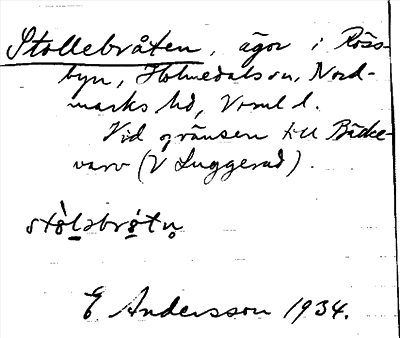 Stollebråten, ägor i Röss-
byn, Holmedals sn, Nord-
marks hd, Vrml l.
Vid gränsen till Bäcke-
varv (V Luggerud).
stòl̠əbrò̠tn̥
E Andersson 1934.